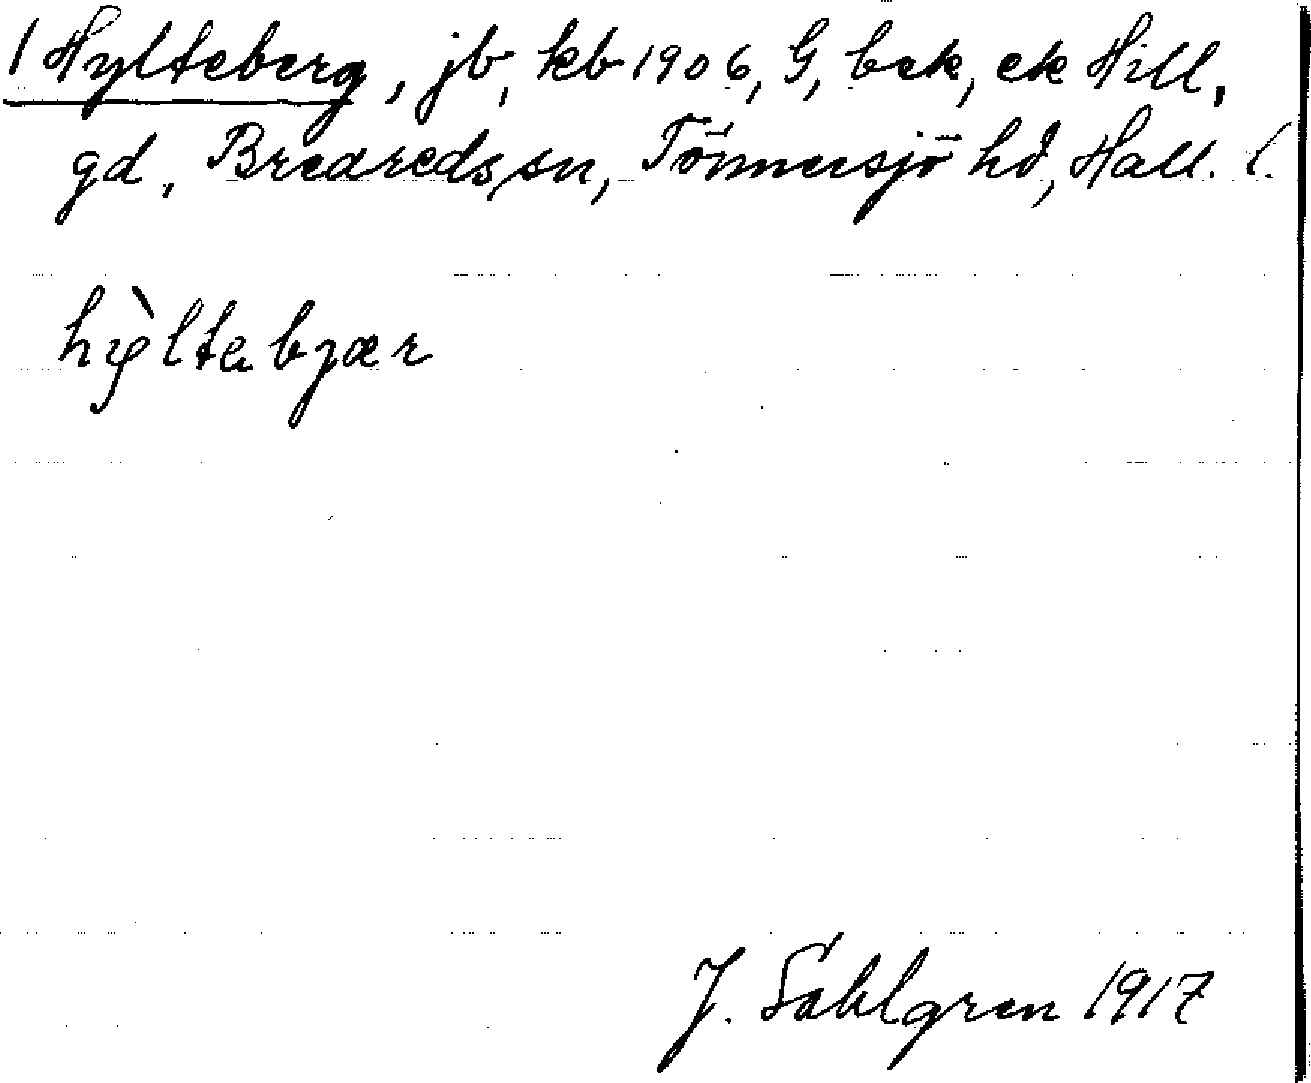 1 Hylteberg, jb, kb 1906, G, bek, ek Hill,
gd, Breareds sn, Tönnersjö hd, Hall. l.
hỳltebjær
J. Sahlgren 1917